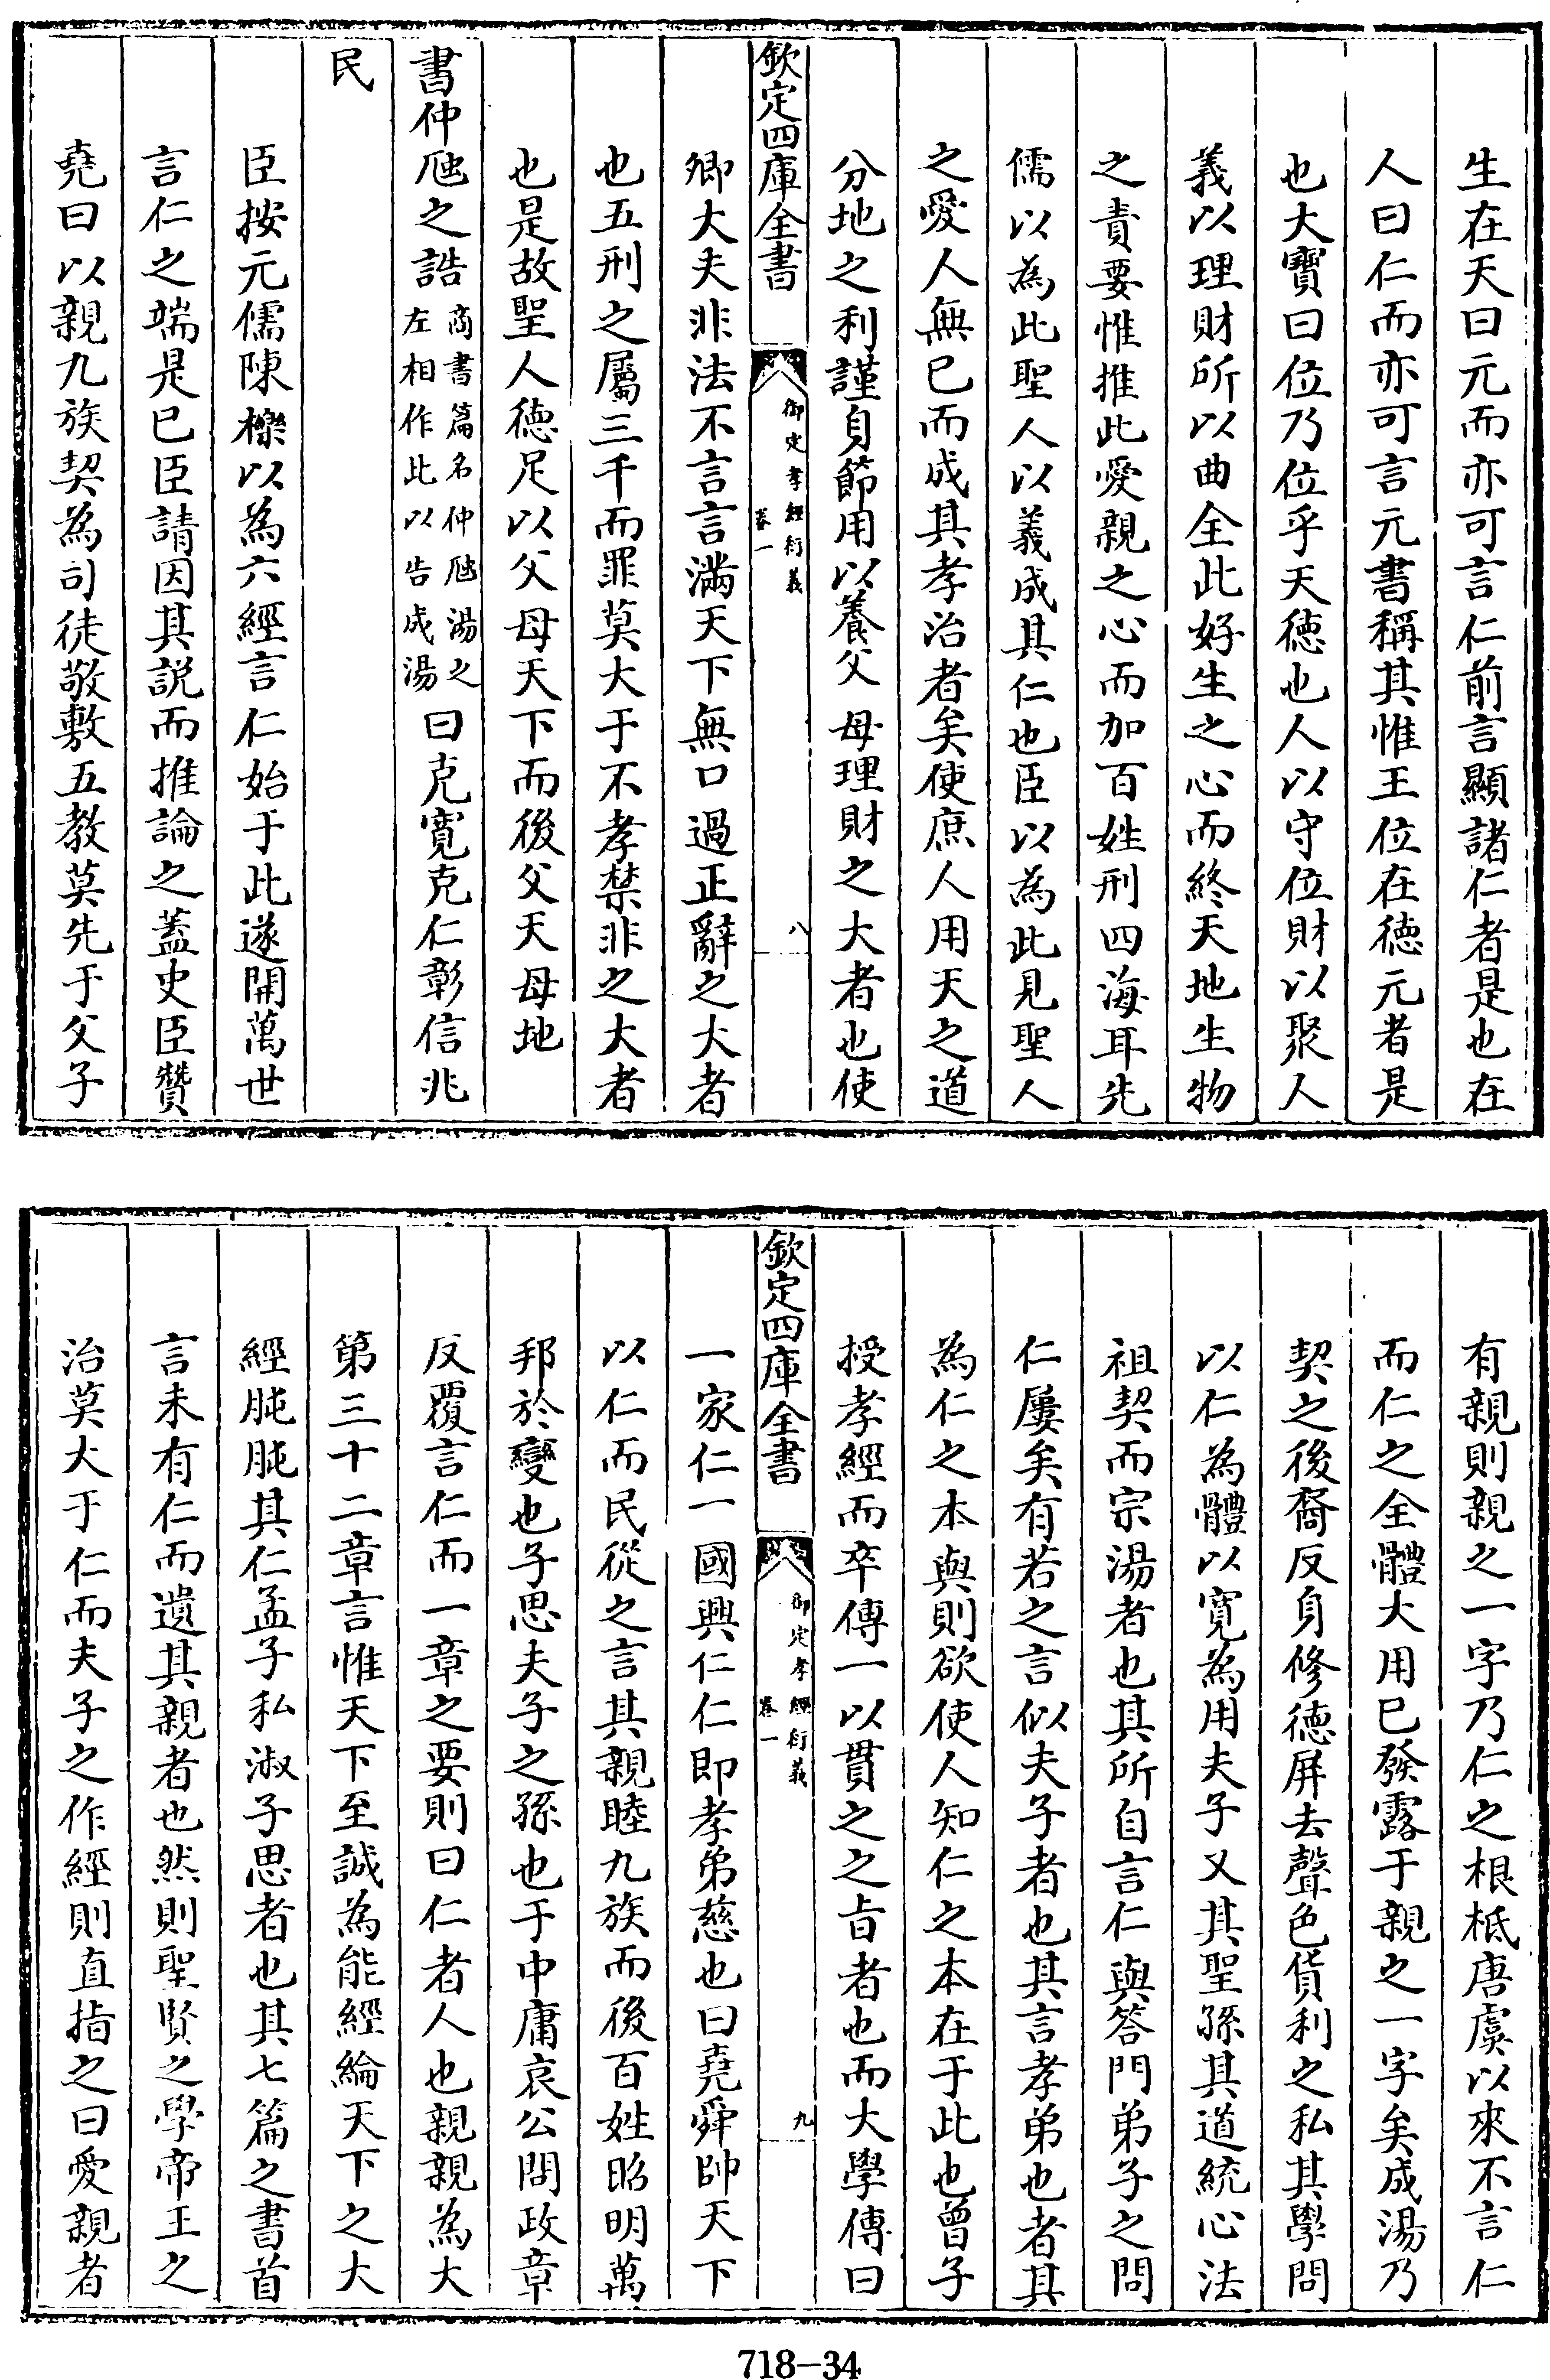 生在天曰元而亦可言仁前言顯諸仁者是也在
人曰仁而亦可言元書稱其惟王位在德元者是
也大寶曰位乃位乎天德也人以守位財以聚人
義以理財所以曲全此好生之心而終天地生物
之責要惟推此愛親之心而加百姓刑四海耳先
儒以為此聖人以義成其仁也臣以為此見聖人
之愛人無已而成其孝治者矣使庶人用天之道
分地之利謹身節用以養父母理財之大者也使
欽定四庫全書
御定孝經衍義
卷一
八
卿大夫非法不言言滿天下無口過正辭之大者
也五刑之屬三千而罪莫大于不孝禁非之大者
也是故聖人德足以父母天下而後父天母地
書仲虺之誥商書篇名仲虺湯之左相作此以告成湯曰克寬克仁彰信兆
民
臣按元儒陳櫟以為六經言仁始于此遂開萬世
言仁之端是已臣請因其説而推論之蓋史臣贊
堯曰以親九族契為司徒敬敷五教莫先于父子
有親則親之一字乃仁之根柢唐虞以來不言仁
而仁之全體大用已發露于親之一字矣成湯乃
契之後裔反身修德屏去聲色貨利之私其學問
以仁為體以寬為用夫子又其聖孫其道統心法
祖契而宗湯者也其所自言仁與答門弟子之問
仁屢矣有若之言似夫子者也其言孝弟也者其
為仁之本與則欲使人知仁之本在于此也曾子
授孝經而卒傳一以貫之之旨者也而大學傳曰
欽定四庫全書
御定孝經衍義
卷一
九
一家仁一國興仁仁即孝弟慈也曰堯舜帥天下
以仁而民從之言其親睦九族而後百姓昭明萬
邦於變也子思夫子之孫也于中庸哀公問政章
反覆言仁而一章之要則曰仁者人也親親為大
第三十二章言惟天下至誠為能經綸天下之大
經肫肫其仁孟子私淑子思者也其七篇之書首
言未有仁而遺其親者也然則聖賢之學帝王之
治莫大于仁而夫子之作經則直指之曰愛親者
718-34